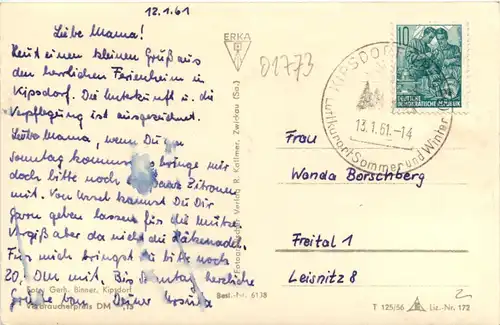 12.1.61
Liebe Mama!
Heut einen kleinen Gruß aus
den herrlichen Ferienheim in
Kipsdorf. Die Unterkunft u. die
Verpflegung ist ausgezeichnet.
Liebe Mama, wenn Du
Sonntag kommst bringe mir
doch bitte noch ein Zitronen
mit. Von Ursel kannst Du Dir
Garn geben lassen für die Mütze
Vergiß aber da nicht die Häkelnadel.
Für mich bringst Du bitte noch
20,- DM mit. Bis Sonntag herzliche
Grüße von Deiner
Foto: Gerh. Binner, Kipsdorf
Verbraucherpreis DM
ERKA
Fotograf. Handabzug Verlag R. Kallmer, Zwickau (Sa.)
Best.-Nr. 6138
01773
10
DEUTSCHE
DEMOKRATISCHE REPUBLIK
KIPSDORF
13.1.61.-14
Luftkurort Sommer und Winter
Frau
Wanda Borschberg
Freital 1
Leisnitz 8
T 125/56 Liz.-Nr. 172
2